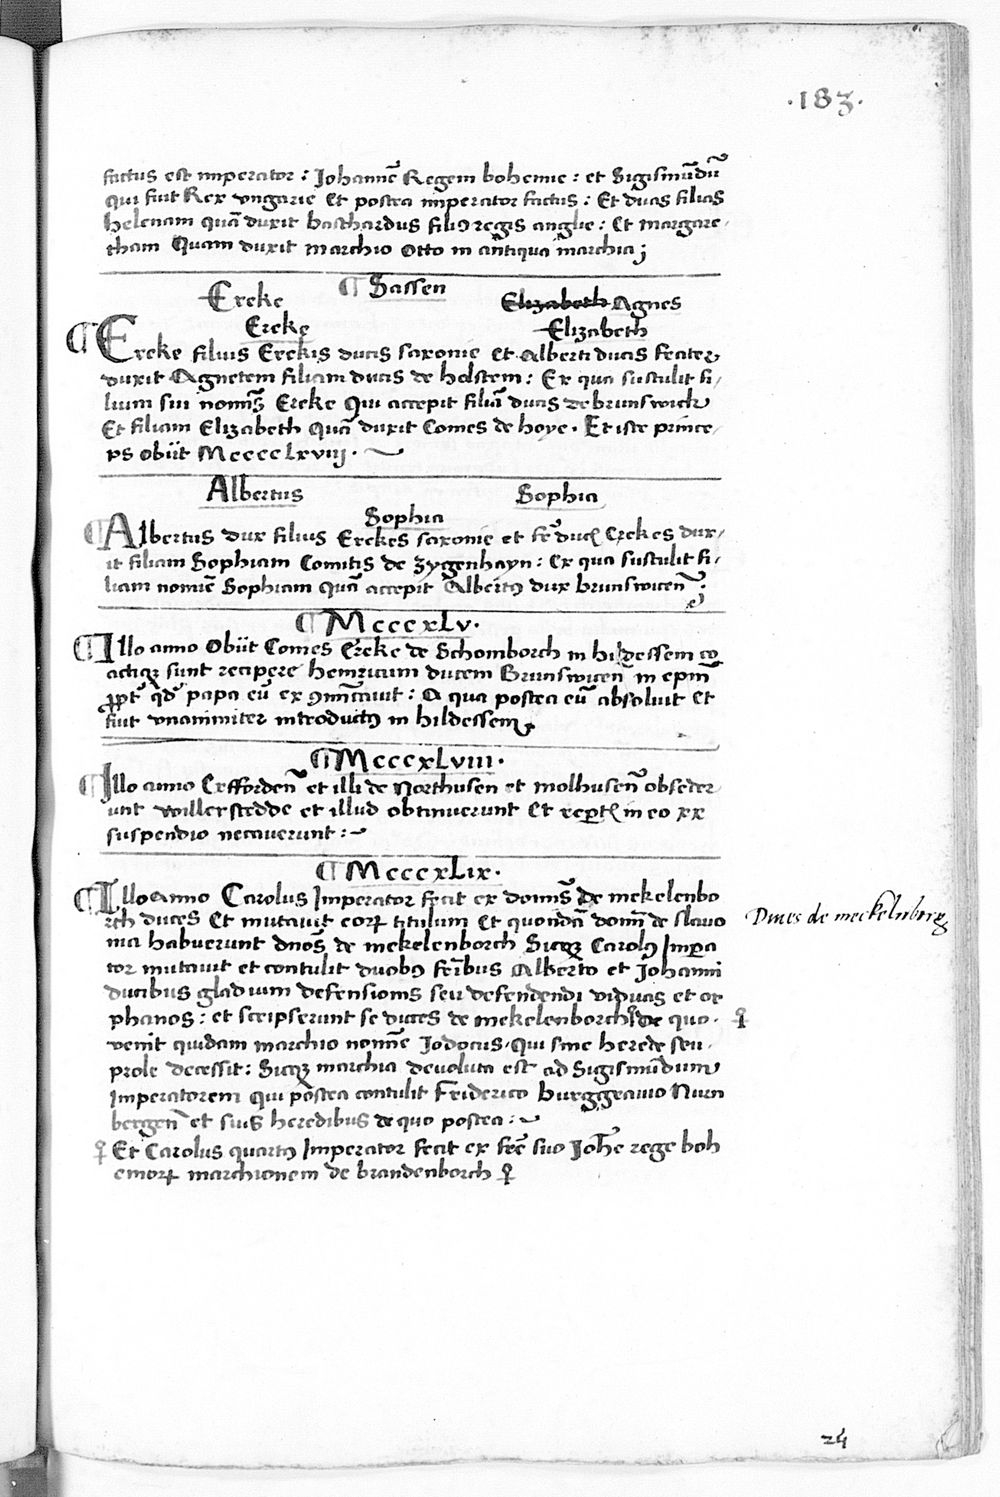 ·183·
factus est imperator : Johannē Regem bohemie : et Sigismūdū
qui fuit Rex ungarie et postea imperator factus : Et duas filias
helenam quā duxit basthardus filiꝰ regis anglie : Et margare-
tham Quam duxit marchio Otto in antiqua marchia ;
¶ Sassen
Ereke
Elizabeth Agnes
Ereke
Elizabeth
¶ Ereke filius Erekis ducis saxonie et Alberti ducis frater
duxit Agnetem filiam ducis de holstem : Ex qua sustulit fi-
lium sui nomīs Ereke Qui accepit filiā ducis de brunswick
Et filiam Elizabeth Quā duxit Comes de hoye . Et iste prince-
ps obiit Mcccclxviij .
Albertus
Sophia
Sophia
¶ Albertus dux filius Erekes saxonie et fr̄ ducꝭ Erekes dux-
it filiam Sophiam Comitis de Zygenhayn : Ex qua sustulit fi-
liam nomīe Sophiam quā accepit Albertꝰ dux brunswicen̄ ;
¶ Mcccxlv .
¶ Illo anno Obiit Comes Ereke de Schomborch in hildessem co
actiqꝫ sunt recipere heinricum ducem Brunswicen̄ in epm̄
ꝓpt̄ qd̄ papa eū exꝯmūcauit : A qua postea eū absoluit et
fuit unanimiter introductꝰ in hildessem
¶ Mcccxlviii .
¶ Illo anno Erfforden̄ et illi de Northusen et molhusen̄ obseder
unt willerstedde et illud obtinuerunt Et rep̄tꝭ in eo xx
suspendio necauerunt :~
¶ Mcccxlix .
¶ Illo anno Carolus Imperator fecit ex domīs de mekelenbo
rch duces Et mutauit eorꝝ titulum Et quondā domī de slauo
nia habuerunt dnōs de mekelenborch Sicqꝫ Carolꝰ Impera
tor mutauit et contulit duobꝰ fr̄ibus Alberto et Johanni
ducibus gladium defensionis seu defendendi viduas et or
phanos : et scripserunt se duces de mekelenborch de quo .
venit quidam marchio nomīe Jodocus . Qui sine herede seu .
prole decessit : Sicqꝫ marchia devoluta est ad Sigismūdum
Imperatorem qui postea contulit Friderico burggrauio Nurn
bergen̄ et suis heredibus de quo postea :~
Et Carolus quartꝰ Imperator fecit ex fr̄e suo Joh̄e rege boh
emorꝝ marchionem de brandenborch
Duces de meckelnberg
24